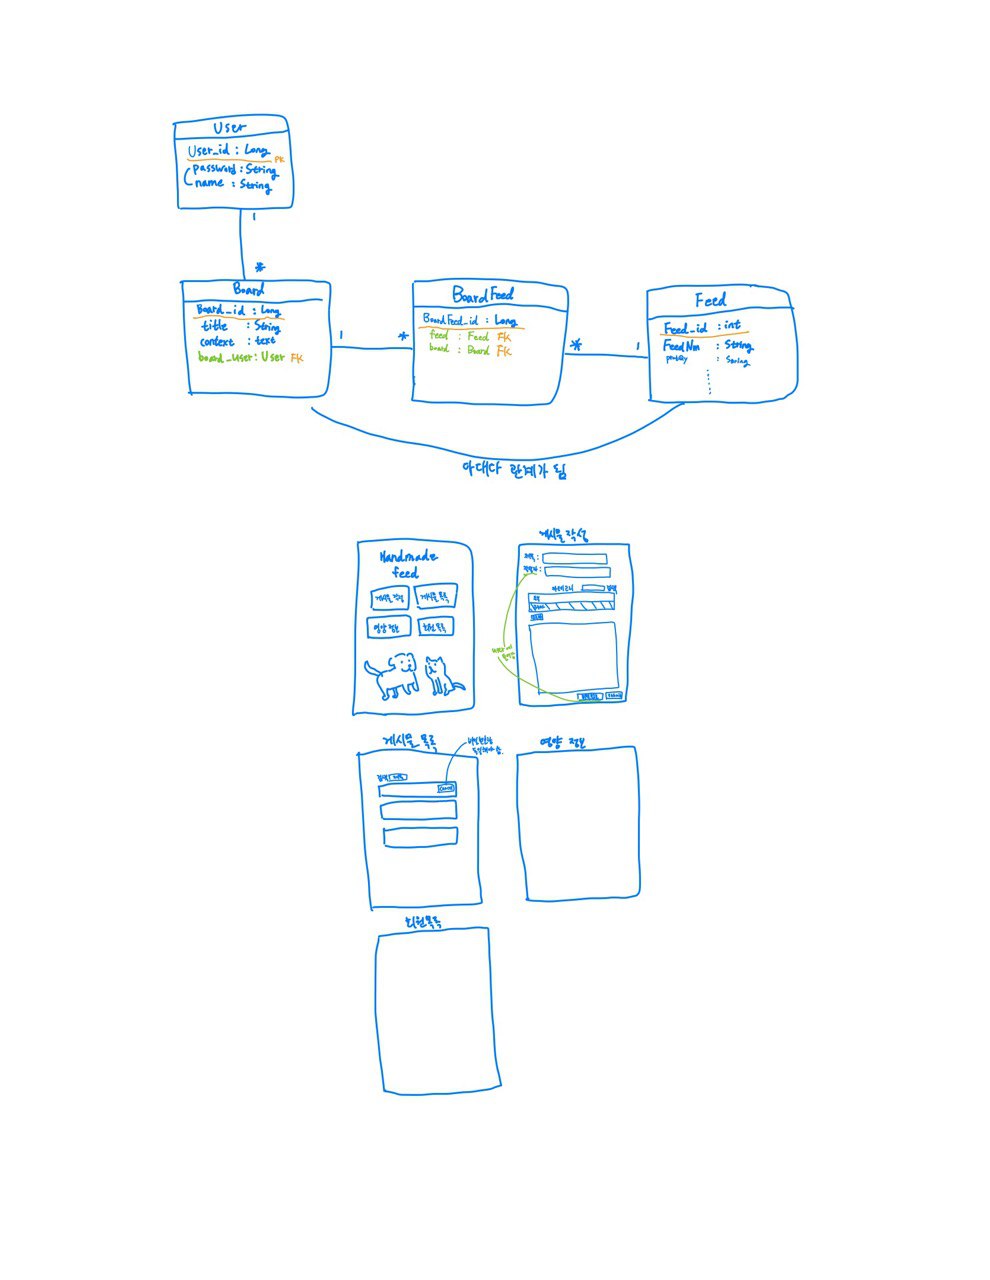 User
User_id : Long
PK
password : String
name : String
1
*
Board
Board_id : Long
title : String
context : text
board_user : User FK
1
*
BoardFeed
BoardFeed_id : Long
feed : Feed FK
board : Board FK
*
1
Feed
Feed_id : int
FeedNm : String
: String
다대다 관계가 됨
Handmade
feed
게시물 작성
게시물 목록
영양 정보
회원 목록
게시물 작성
제목 :
작성자 :
카테고리
검색
게시물 목록
검색
제목
비밀번호
영양 정보
회원목록